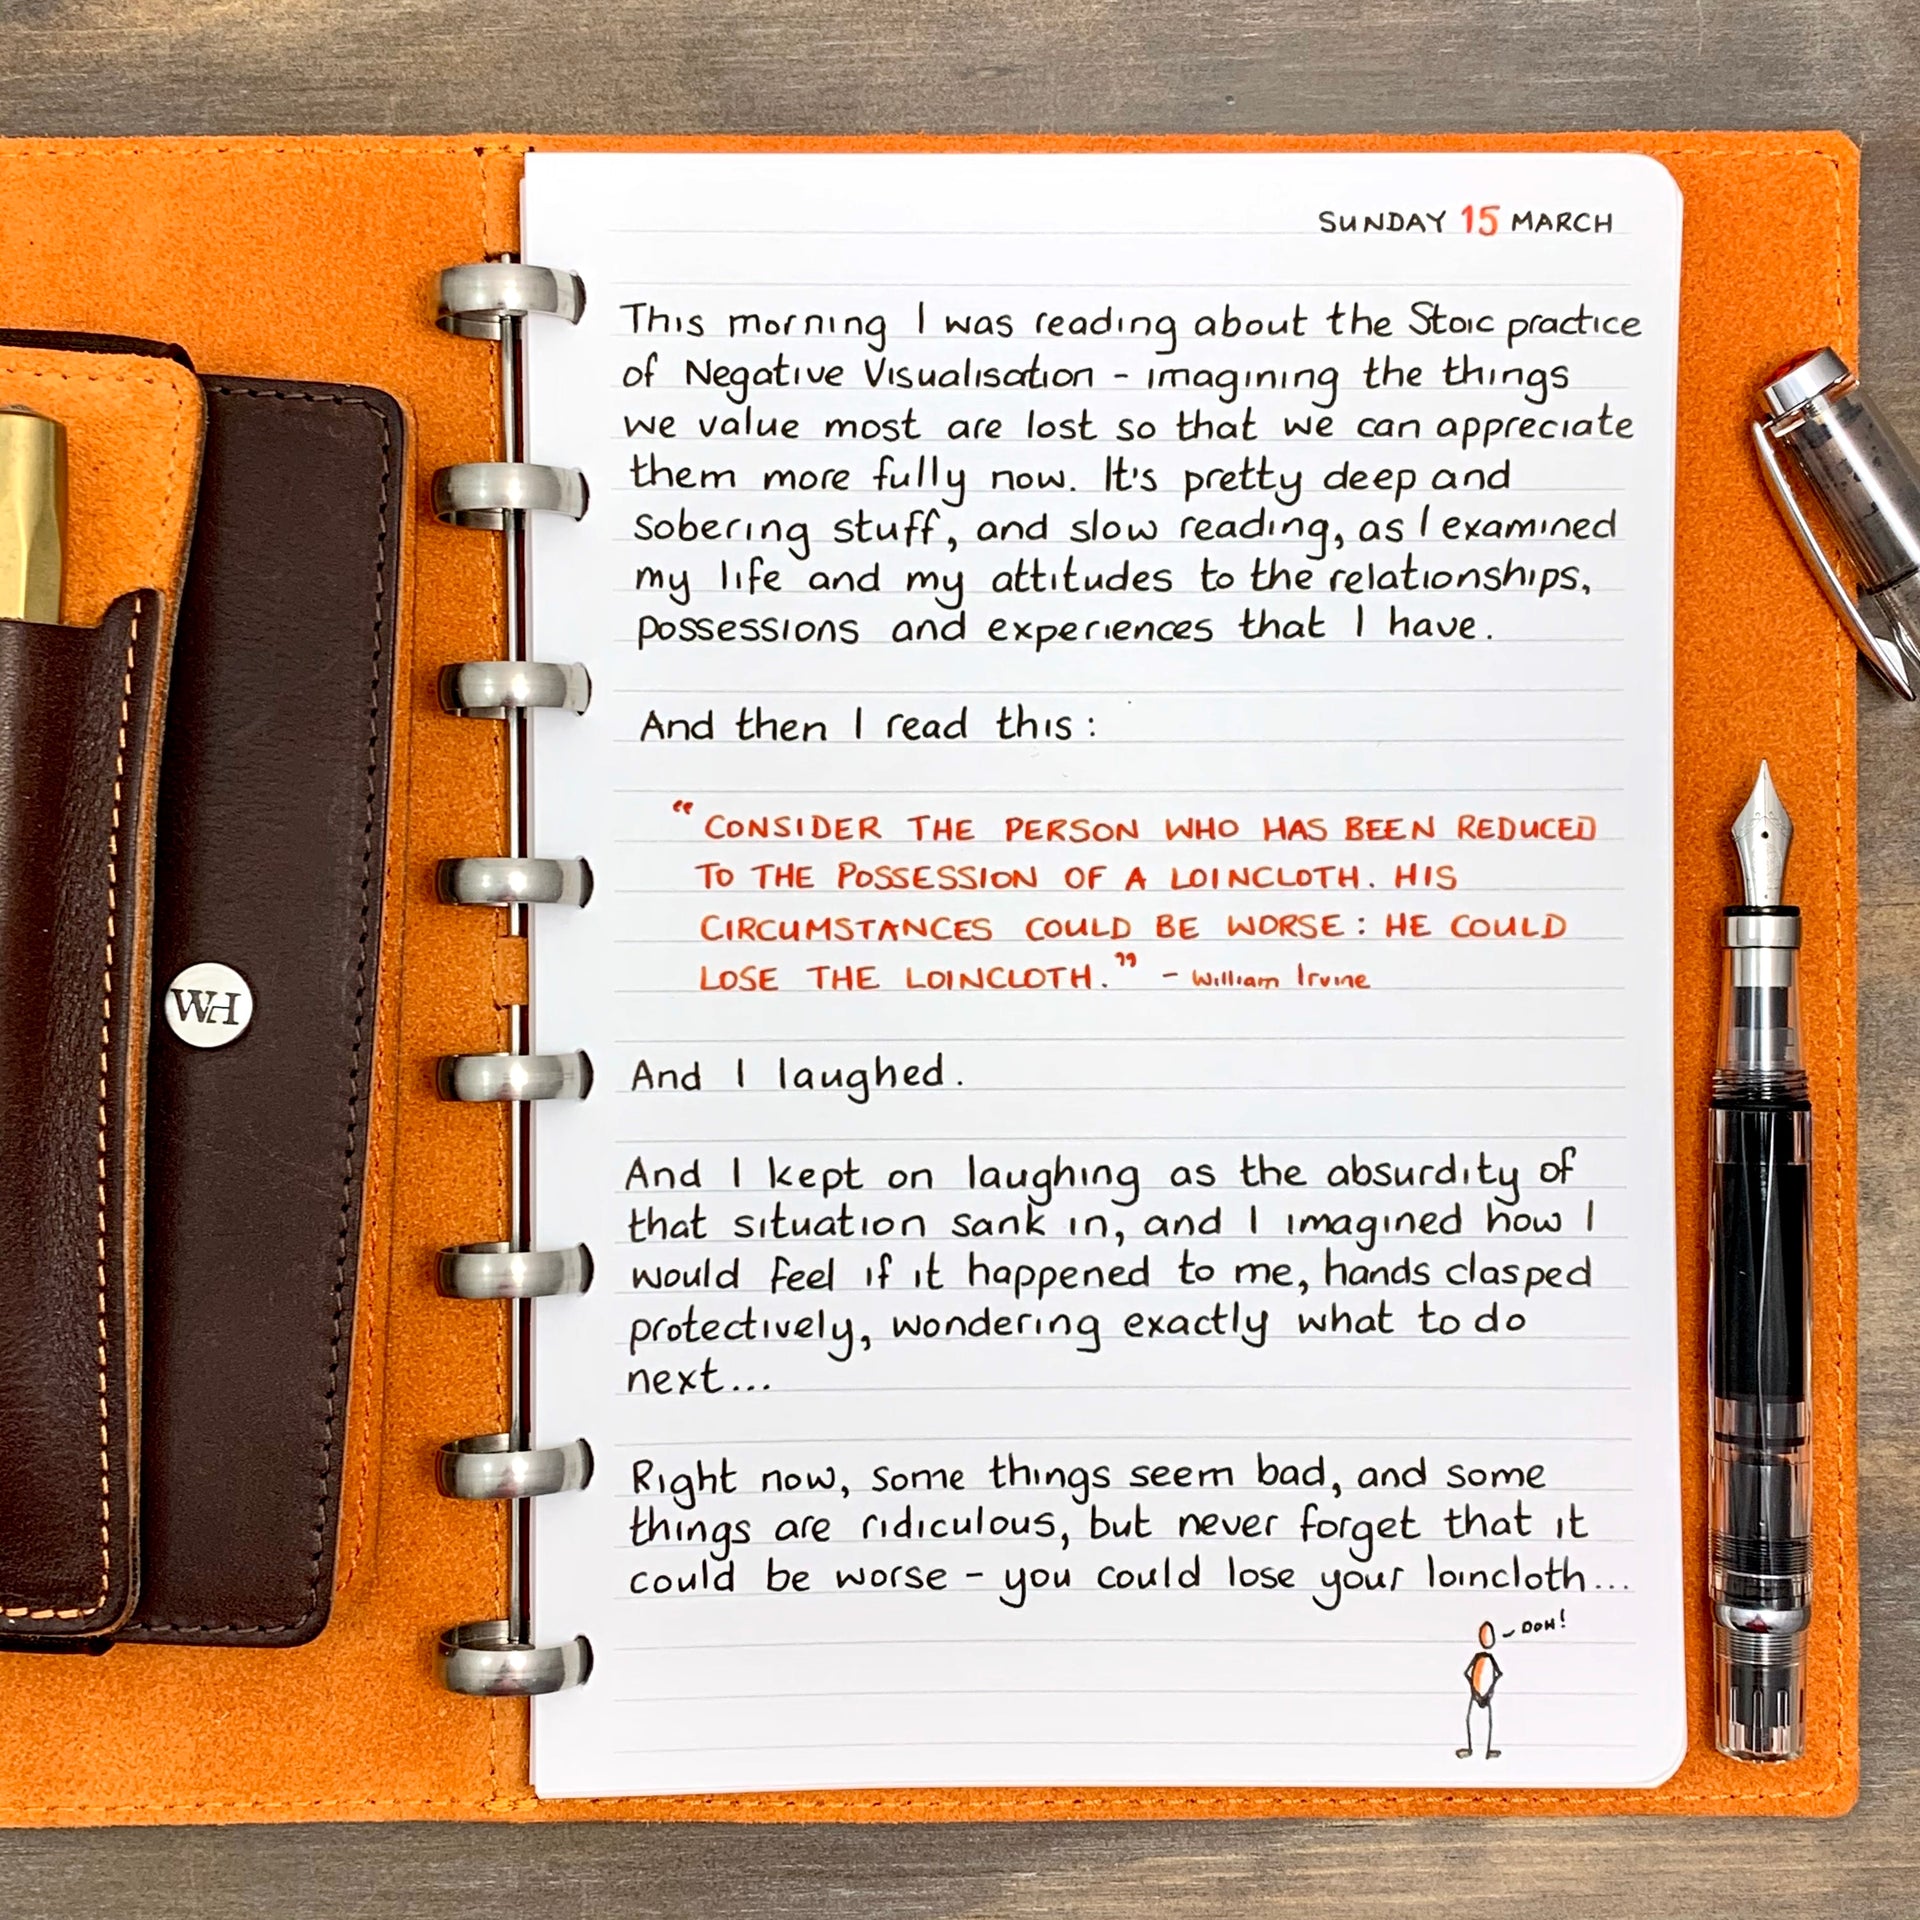 SUNDAY 15 MARCH
This morning I was reading about the Stoic practice
of Negative Visualisation - imagining the things
we value most are lost so that we can appreciate
them more fully now. It's pretty deep and
sobering stuff, and slow reading, as I examined
my life and my attitudes to the relationships,
possessions and experiences that I have.
And then I read this:
“CONSIDER THE PERSON WHO HAS BEEN REDUCED
TO THE POSSESSION OF A LOINCLOTH. HIS
CIRCUMSTANCES COULD BE WORSE: HE COULD
LOSE THE LOINCLOTH.” - William Irvine
And I laughed.
And I kept on laughing as the absurdity of
that situation sank in, and I imagined how I
would feel if it happened to me, hands clasped
protectively, wondering exactly what to do
next...
Right now, some things seem bad, and some
things are ridiculous, but never forget that it
could be worse - you could lose your loincloth...
DOH!
WH